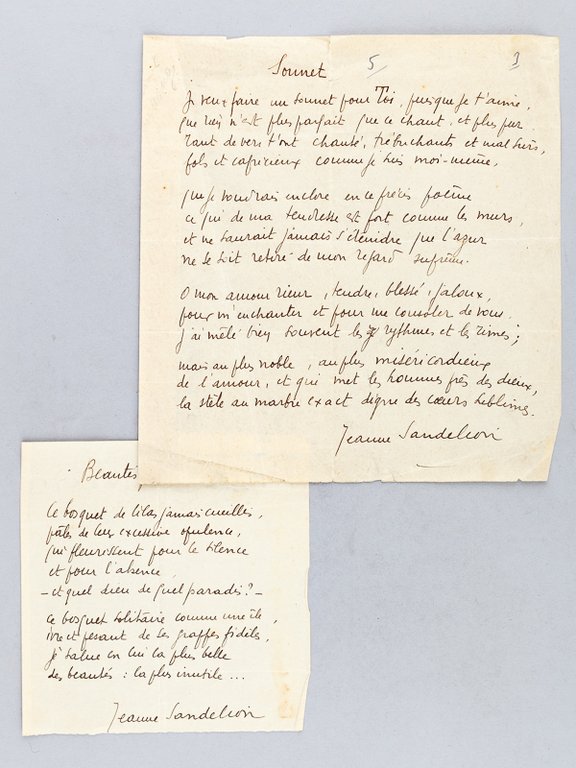 Sonnet
5
3
Je veux faire un sonnet pour Toi, puisque je t'aime,
que rien n'est plus parfait que ce chant, et plus pur.
Tant de vers t'ont chanté, trébuchants et mal sûrs,
fols et capricieux comme je suis moi-même,
que je voudrais enclore en ce précis poème
ce qui de ma tendresse est fort comme les murs,
et ne saurait jamais s'éteindre que l'azur
ne se soit retiré de mon regard suprême.
O mon amour rieur, tendre, blessé, jaloux,
pour m'enchanter et pour me consoler de vous
j'ai mêlé bien souvent les rythmes et les rimes ;
mais au plus noble, au plus miséricordieux
de l'amour, et qui met les hommes près des dieux,
la stèle au marbre exact digne des cœurs sublimes.
Jeanne Sandelion
Beautés
Ce bosquet de lilas jamais cueillis,
pâles de leur excessive opulence,
qui fleurissent pour le silence
et pour l'absence
— et quel dieu de quel paradis ? —
ce bosquet solitaire comme une île,
ivre et pesant de ses grappes fidèles,
je salue en lui la plus belle
des beautés : la plus inutile ...
Jeanne Sandelion